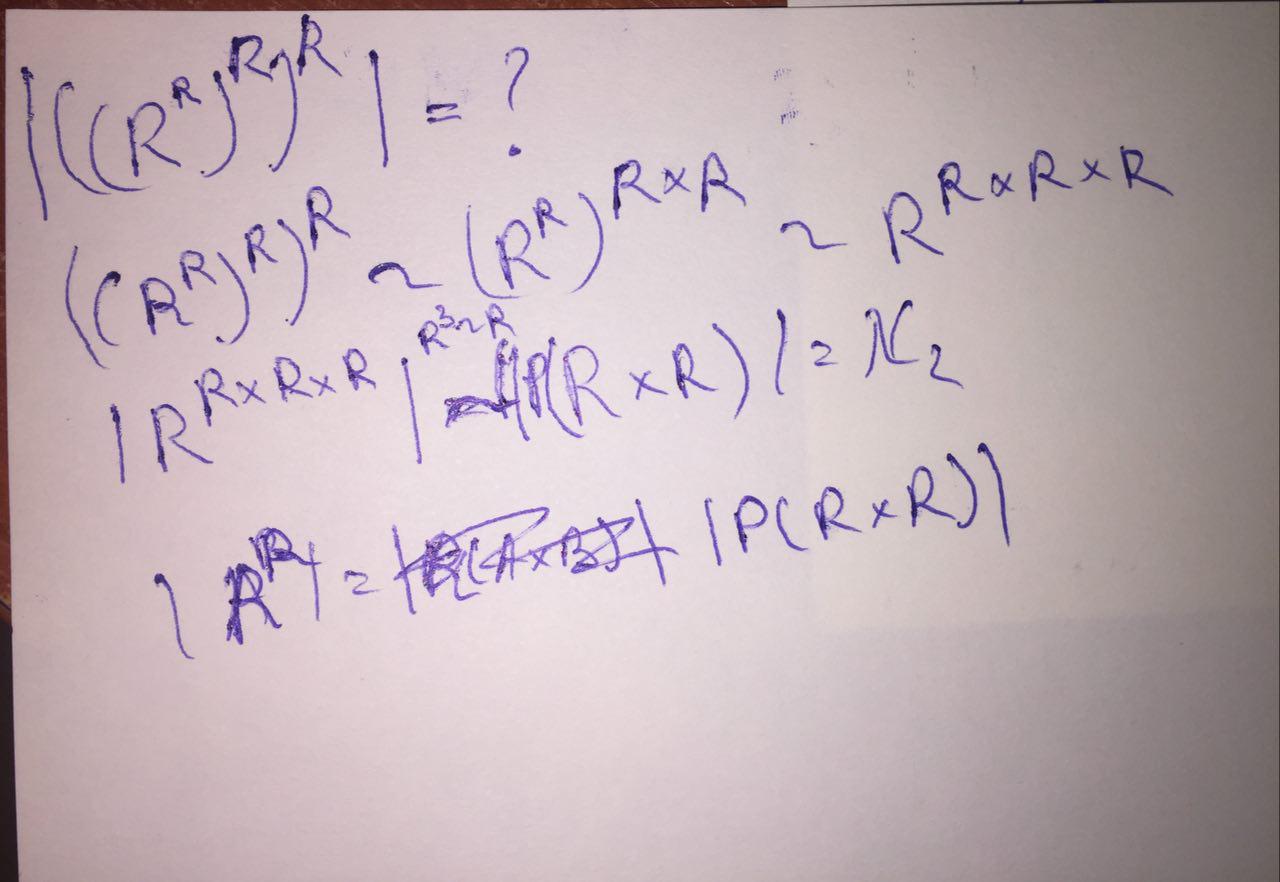 |((R^R)^R)^R| = ?
((R^R)^R)^R ~ (R^R)^{R×R} ~ R^{R×R×R}
|R^{R×R×R}| R^3~R |P(R×R)| = ℵ_2
|R^R| = |P(R×R)|